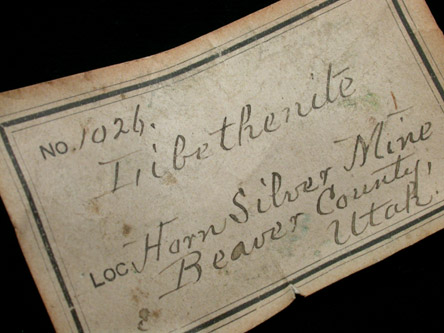 NO. 1026.
Libethenite
LOC. Horn Silver Mine
Beaver County,
Utah.